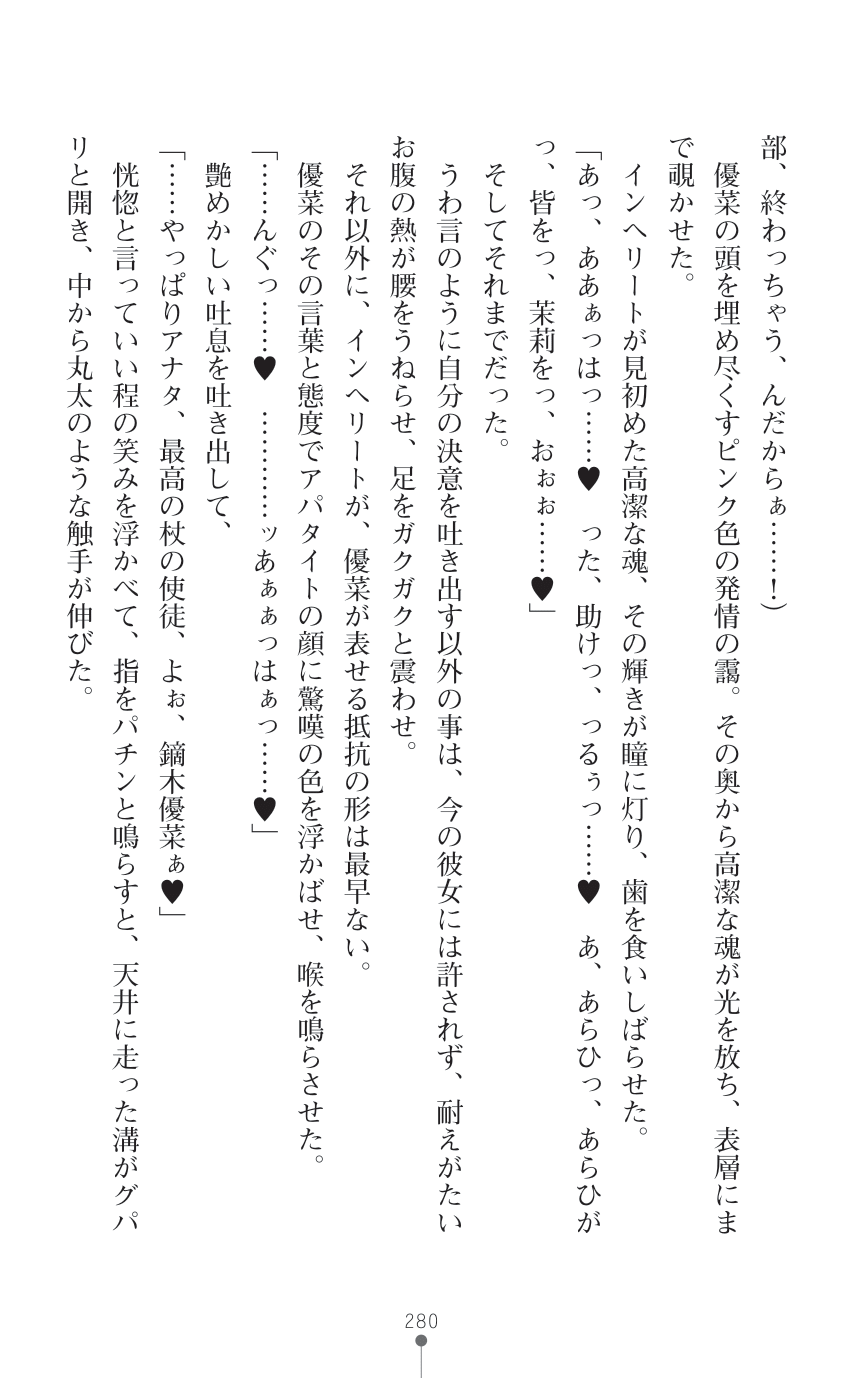 部、終わっちゃう、んだからぁ……！）
　優菜の頭を埋め尽くすピンク色の発情の靄。その奥から高潔な魂が光を放ち、表層にま
で覗かせた。
　インヘリートが見初めた高潔な魂、その輝きが瞳に灯り、歯を食いしばらせた。
「あっ、ああぁっはっ……♥　った、助けっ、つるぅっ……♥　あ、あらひっ、あらひが
っ、皆をっ、茉莉をっ、おぉぉ……♥」
　そしてそれまでだった。
　うわ言のように自分の決意を吐き出す以外の事は、今の彼女には許されず、耐えがたい
お腹の熱が腰をうねらせ、足をガクガクと震わせ。
　それ以外に、インヘリートが、優菜が表せる抵抗の形は最早ない。
　優菜のその言葉と態度でアパタイトの顔に驚嘆の色を浮かばせ、喉を鳴らさせた。
「……んぐっ……♥　…………ッあぁぁっはぁっ……♥」
　艶めかしい吐息を吐き出して、
「……やっぱりアナタ、最高の杖の使徒、よぉ、鏑木優菜ぁ♥」
　恍惚と言っていい程の笑みを浮かべて、指をパチンと鳴らすと、天井に走った溝がグパ
リと開き、中から丸太のような触手が伸びた。
280